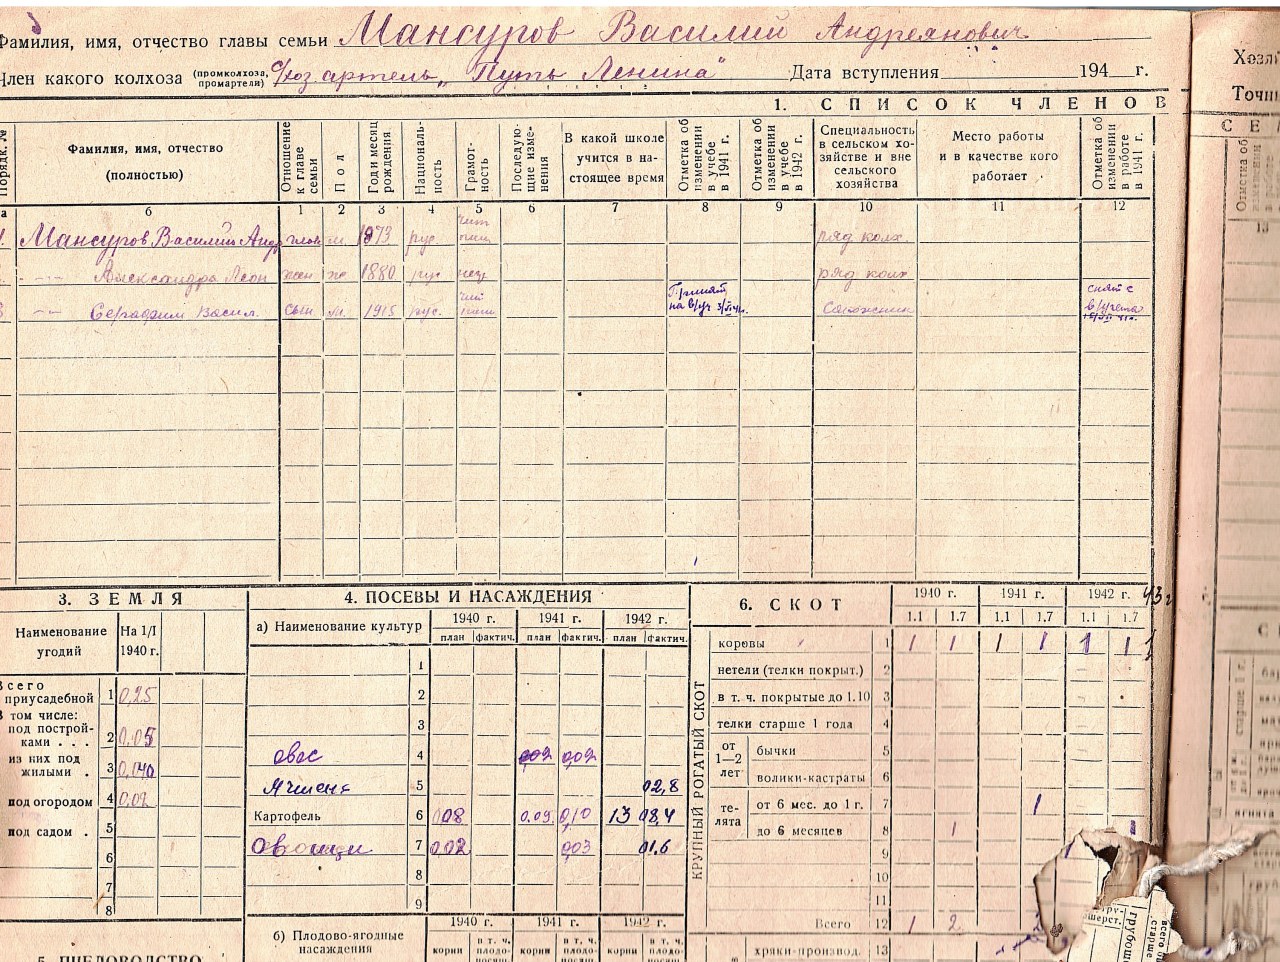 Фамилия, имя, отчество главы семьи Мансуров Василий Андреянович
Член какого колхоза (промколхоза, промартели) с/хоз. артель „Путь Ленина" Дата вступления 194 г.
1. СПИСОК ЧЛЕНОВ
Порядк. №
Фамилия, имя, отчество (полностью)
Отношение к главе семьи
Пол
Год и месяц рождения
Националь-ность
Грамот-ность
Последую-щие изме-нения
В какой школе учится в на-стоящее время
Отметка об изменении в учебе в 1941 г.
Отметка об изменении в учебе в 1942 г.
Специальность в сельском хо-зяйстве и вне сельского хозяйства
Место работы и в качестве кого работает
Отметка об изменении в работе в 1941 г.
а б 1 2 3 4 5 6 7 8 9 10 11 12
1. Мансуров Василий Андр глав м. 1873 рус. чит пиш ряд колх.
— — Александра Леон жен ж 1880 рус негр ряд колх
3 — — Серафим Васил. сын м. 1915 рус. чит пиш Принят на в/уч Сапожник снят с в/учета
3. ЗЕМЛЯ
Наименование угодий
На 1/I 1940 г.
Всего приусадебной 1 0,25
В том числе:
под построй-ками . . . 2 0.05
из них под жилыми . 3 0,040
под огородом 4 0,02
под садом . 5
6
7
8
4. ПОСЕВЫ И НАСАЖДЕНИЯ
а) Наименование культур
1940 г. 1941 г. 1942 г.
план фактич. план фактич. план фактич.
1
2
3
овес 4 0,02 0,02
Ячмень 5 02,8
Картофель 6 0,08 0.09 0,10 13 08,4
Овощи 7 0,02 0,03 01.6
8
9
б) Плодово-ягодные насаждения
1940 г. 1941 г. 1942 г.
корни в т. ч. плодо-носящ. корни в т. ч. плодо-носящ. корни в т. ч. плодо-носящ.
5. ПЧЕЛОВОДСТВО
6. СКОТ
1940 г. 1941 г. 1942 г. 43 г
1.1 1.7 1.1 1.7 1.1 1.7
КРУПНЫЙ РОГАТЫЙ СКОТ
коровы 1 1 1 1 1 1 1
нетели (телки покрыт.) 2
в т. ч. покрытые до 1.10 3
телки старше 1 года 4
от 1—2 лет
бычки 5
волики-кастраты 6
те-лята
от 6 мес. до 1 г. 7 1
до 6 месяцев 8 1
9
10
11
Всего 12 1 2
хряки-производ. 13
Хозя
Точн
СЕ
13